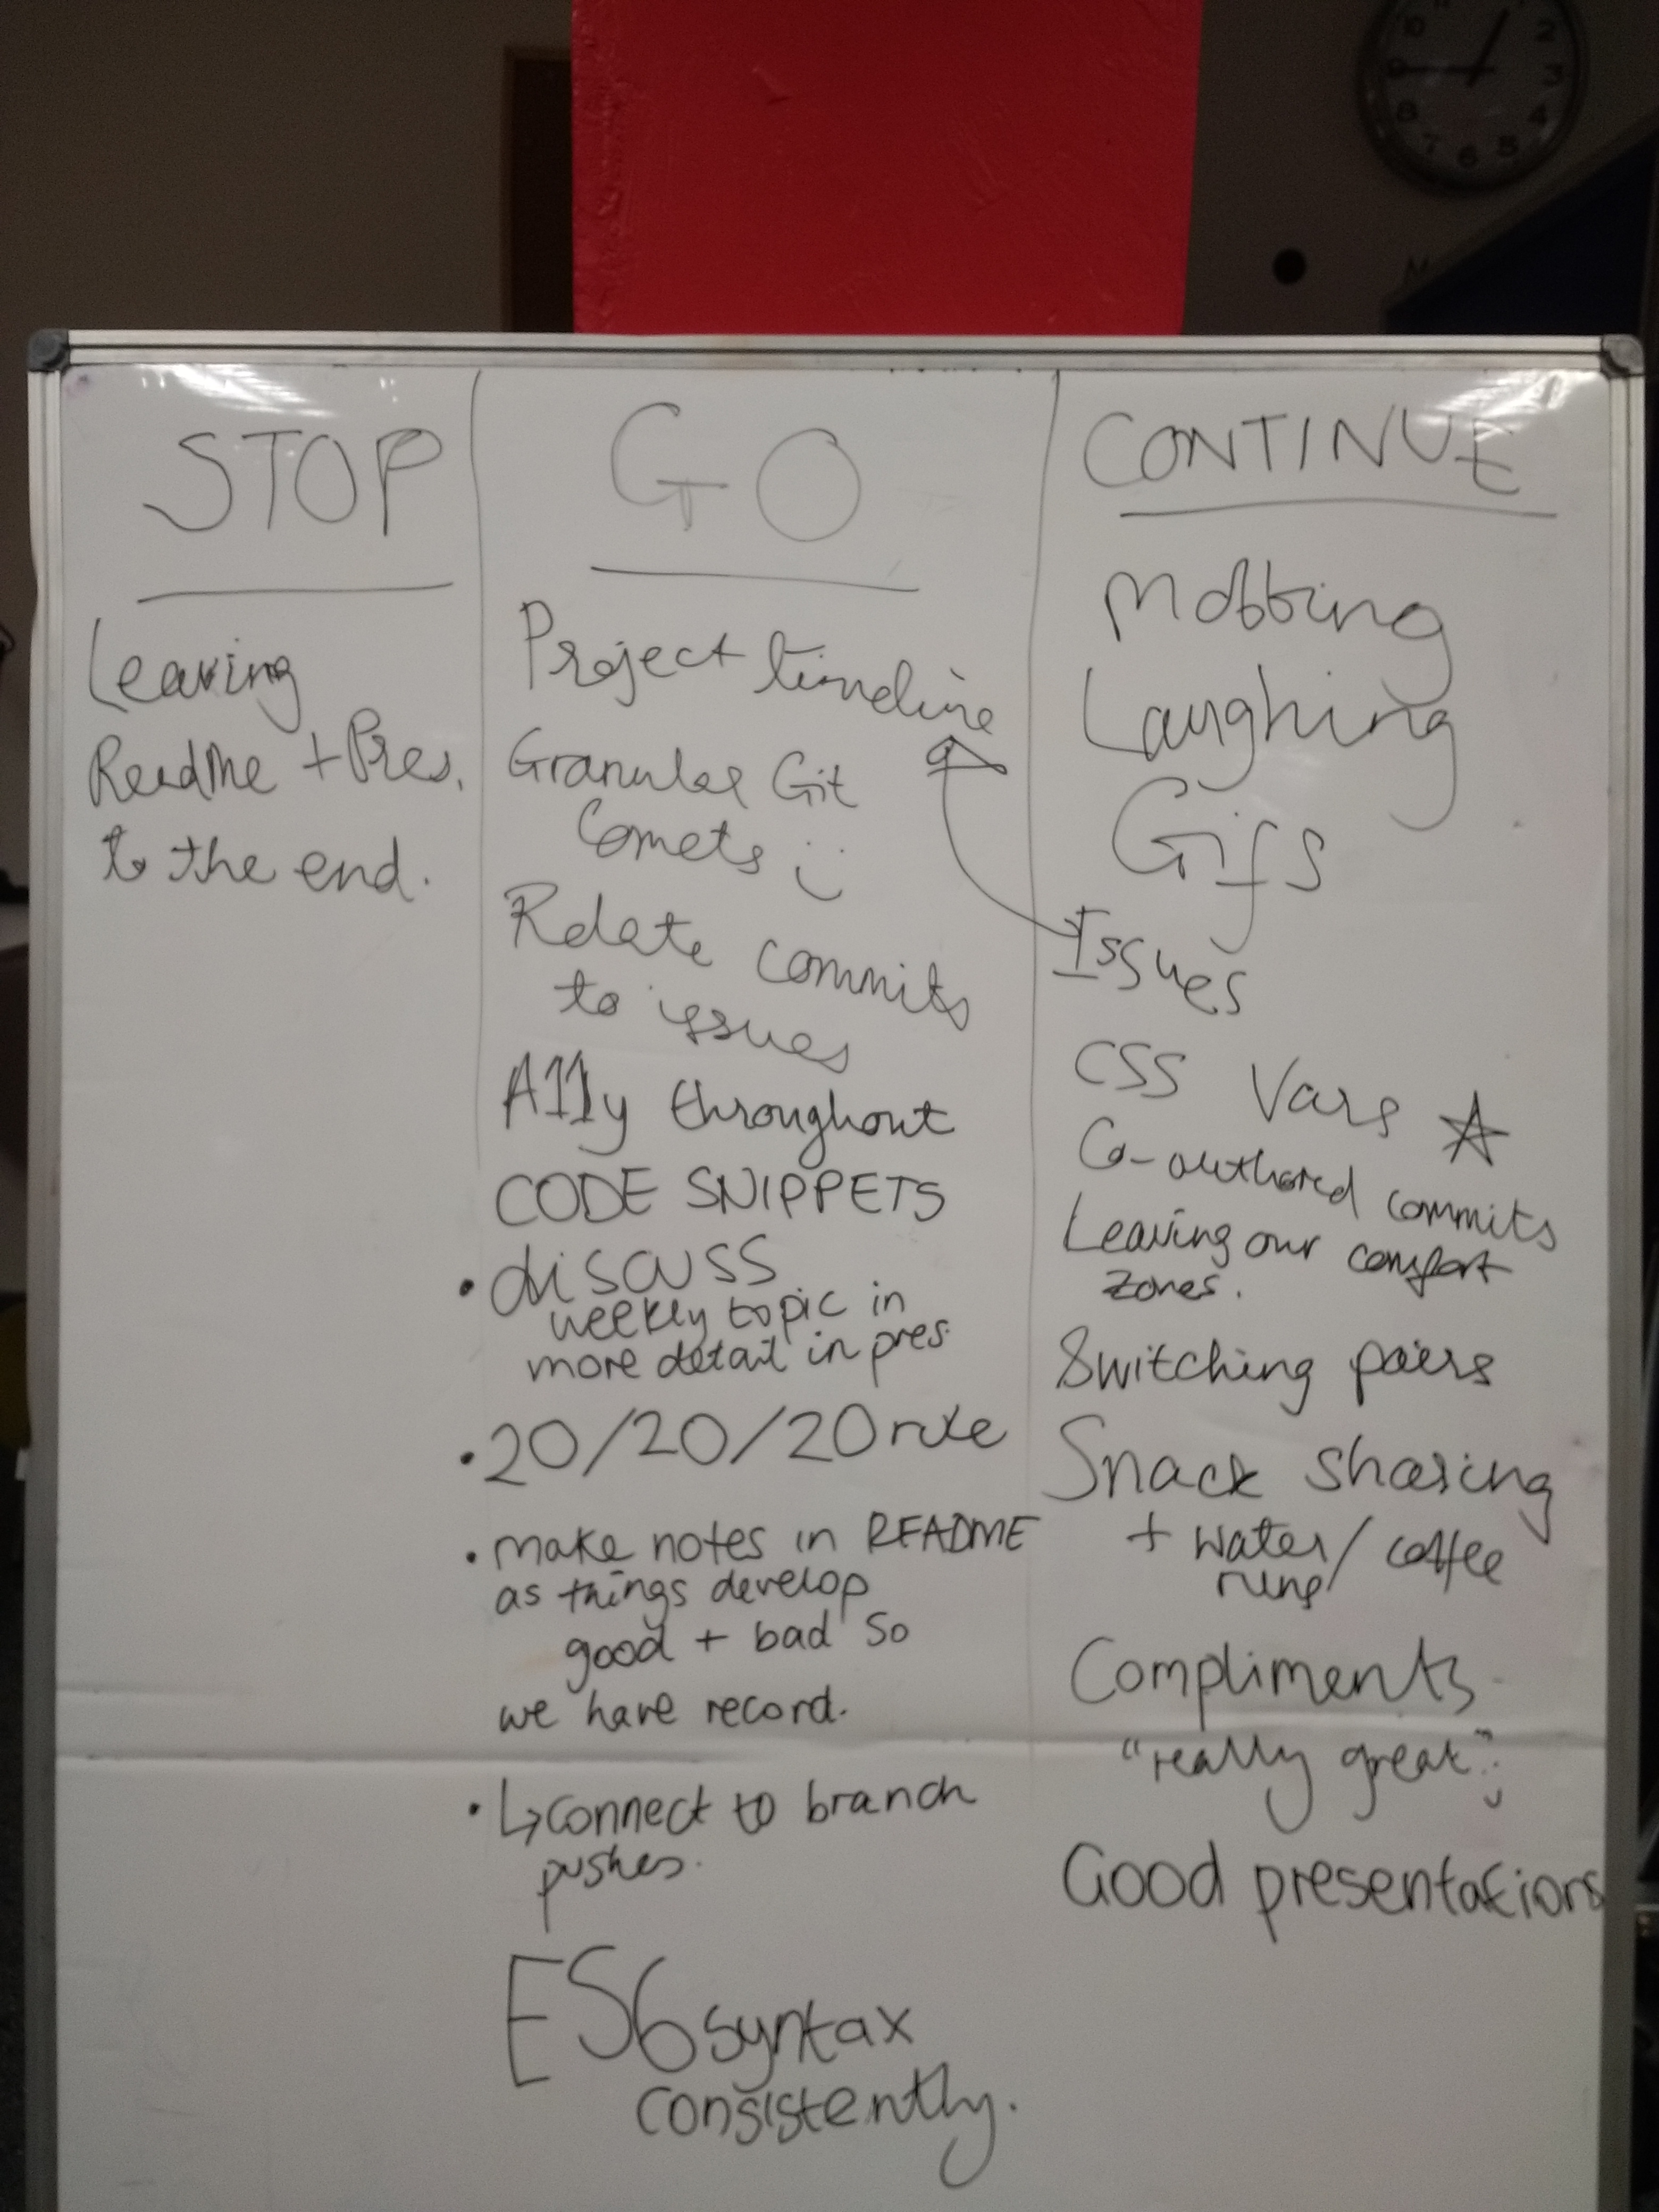 STOP
Leaving
Readme + Pres.
to the end.
GO
Project timeline
Granular Git
Comets
Relate commits
to issues
A11y throughout
CODE SNIPPETS
• discuss
weekly topic in
more detail in pres.
• 20/20/20 rule
• make notes in README
as things develop
good + bad so
we have record.
• ↳ connect to branch
pushes.
ES6 syntax
consistently.
CONTINUE
Mobbing
Laughing
Gifs
Issues
CSS Vars ☆
Co-authored commits
Leaving our comfort
zones.
Switching pairs
Snack sharing
+ water/coffee
runs
Compliments
"really great"
Good presentations
10 2
9 3
8 4
7 6 5
M